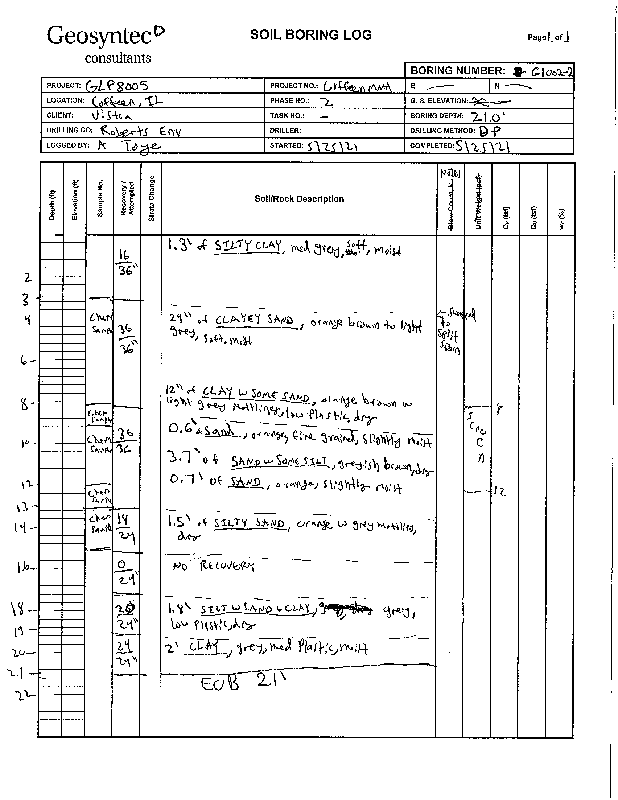 Geosyntec
consultants
SOIL BORING LOG
Page 1 of 1
BORING NUMBER: G1002-2
PROJECT: GLP8005
PROJECT NO.:
E
N
LOCATION: Coffeen, IL
PHASE NO.: 2
G. S. ELEVATION:
CLIENT: Vistra
TASK NO.: -
BORING DEPTH: 21.0'
DRILLING CO: Roberts Env
DRILLER:
DRILLING METHOD: DP
LOGGED BY: A
STARTED: 5/25/21
COMPLETED: 5/25/21
Depth (ft)
Elevation (ft)
Sample No.
Recovery / Attempted
Strata Change
Soil/Rock Description
Notes
Blow Count
Unit Weight (pcf)
Qu (tsf)
w (%)
1.3' of SILTY CLAY, med grey, soft, moist
16
36"
2
3
4
Chem
Samp
36
36"
24" of CLAYEY SAND, orange brown to light
grey, soft, moist
to
Split
Spoon
6
12" of CLAY w SOME SAND, orange brown w
light grey mottling, low plastic, dry
8
8
0.6' Sand, orange, fine grained, slightly moist
10
Chem
Samp
36
36
3.7' of SAND w SOME SILT, greyish brown, dry
0.7' of SAND, orange, slightly moist
12
12
Chem
Samp
13
14
Chem
Samp
14
24
1.5' of SILTY SAND, orange w grey mottling,
dry
16
0
24"
NO RECOVERY
18
20
24"
1.8' SILT w SAND & CLAY, grey,
low plastic, dry
19
20
24
24"
2' CLAY, grey, med plastic, moist
21
EOB 21'
22